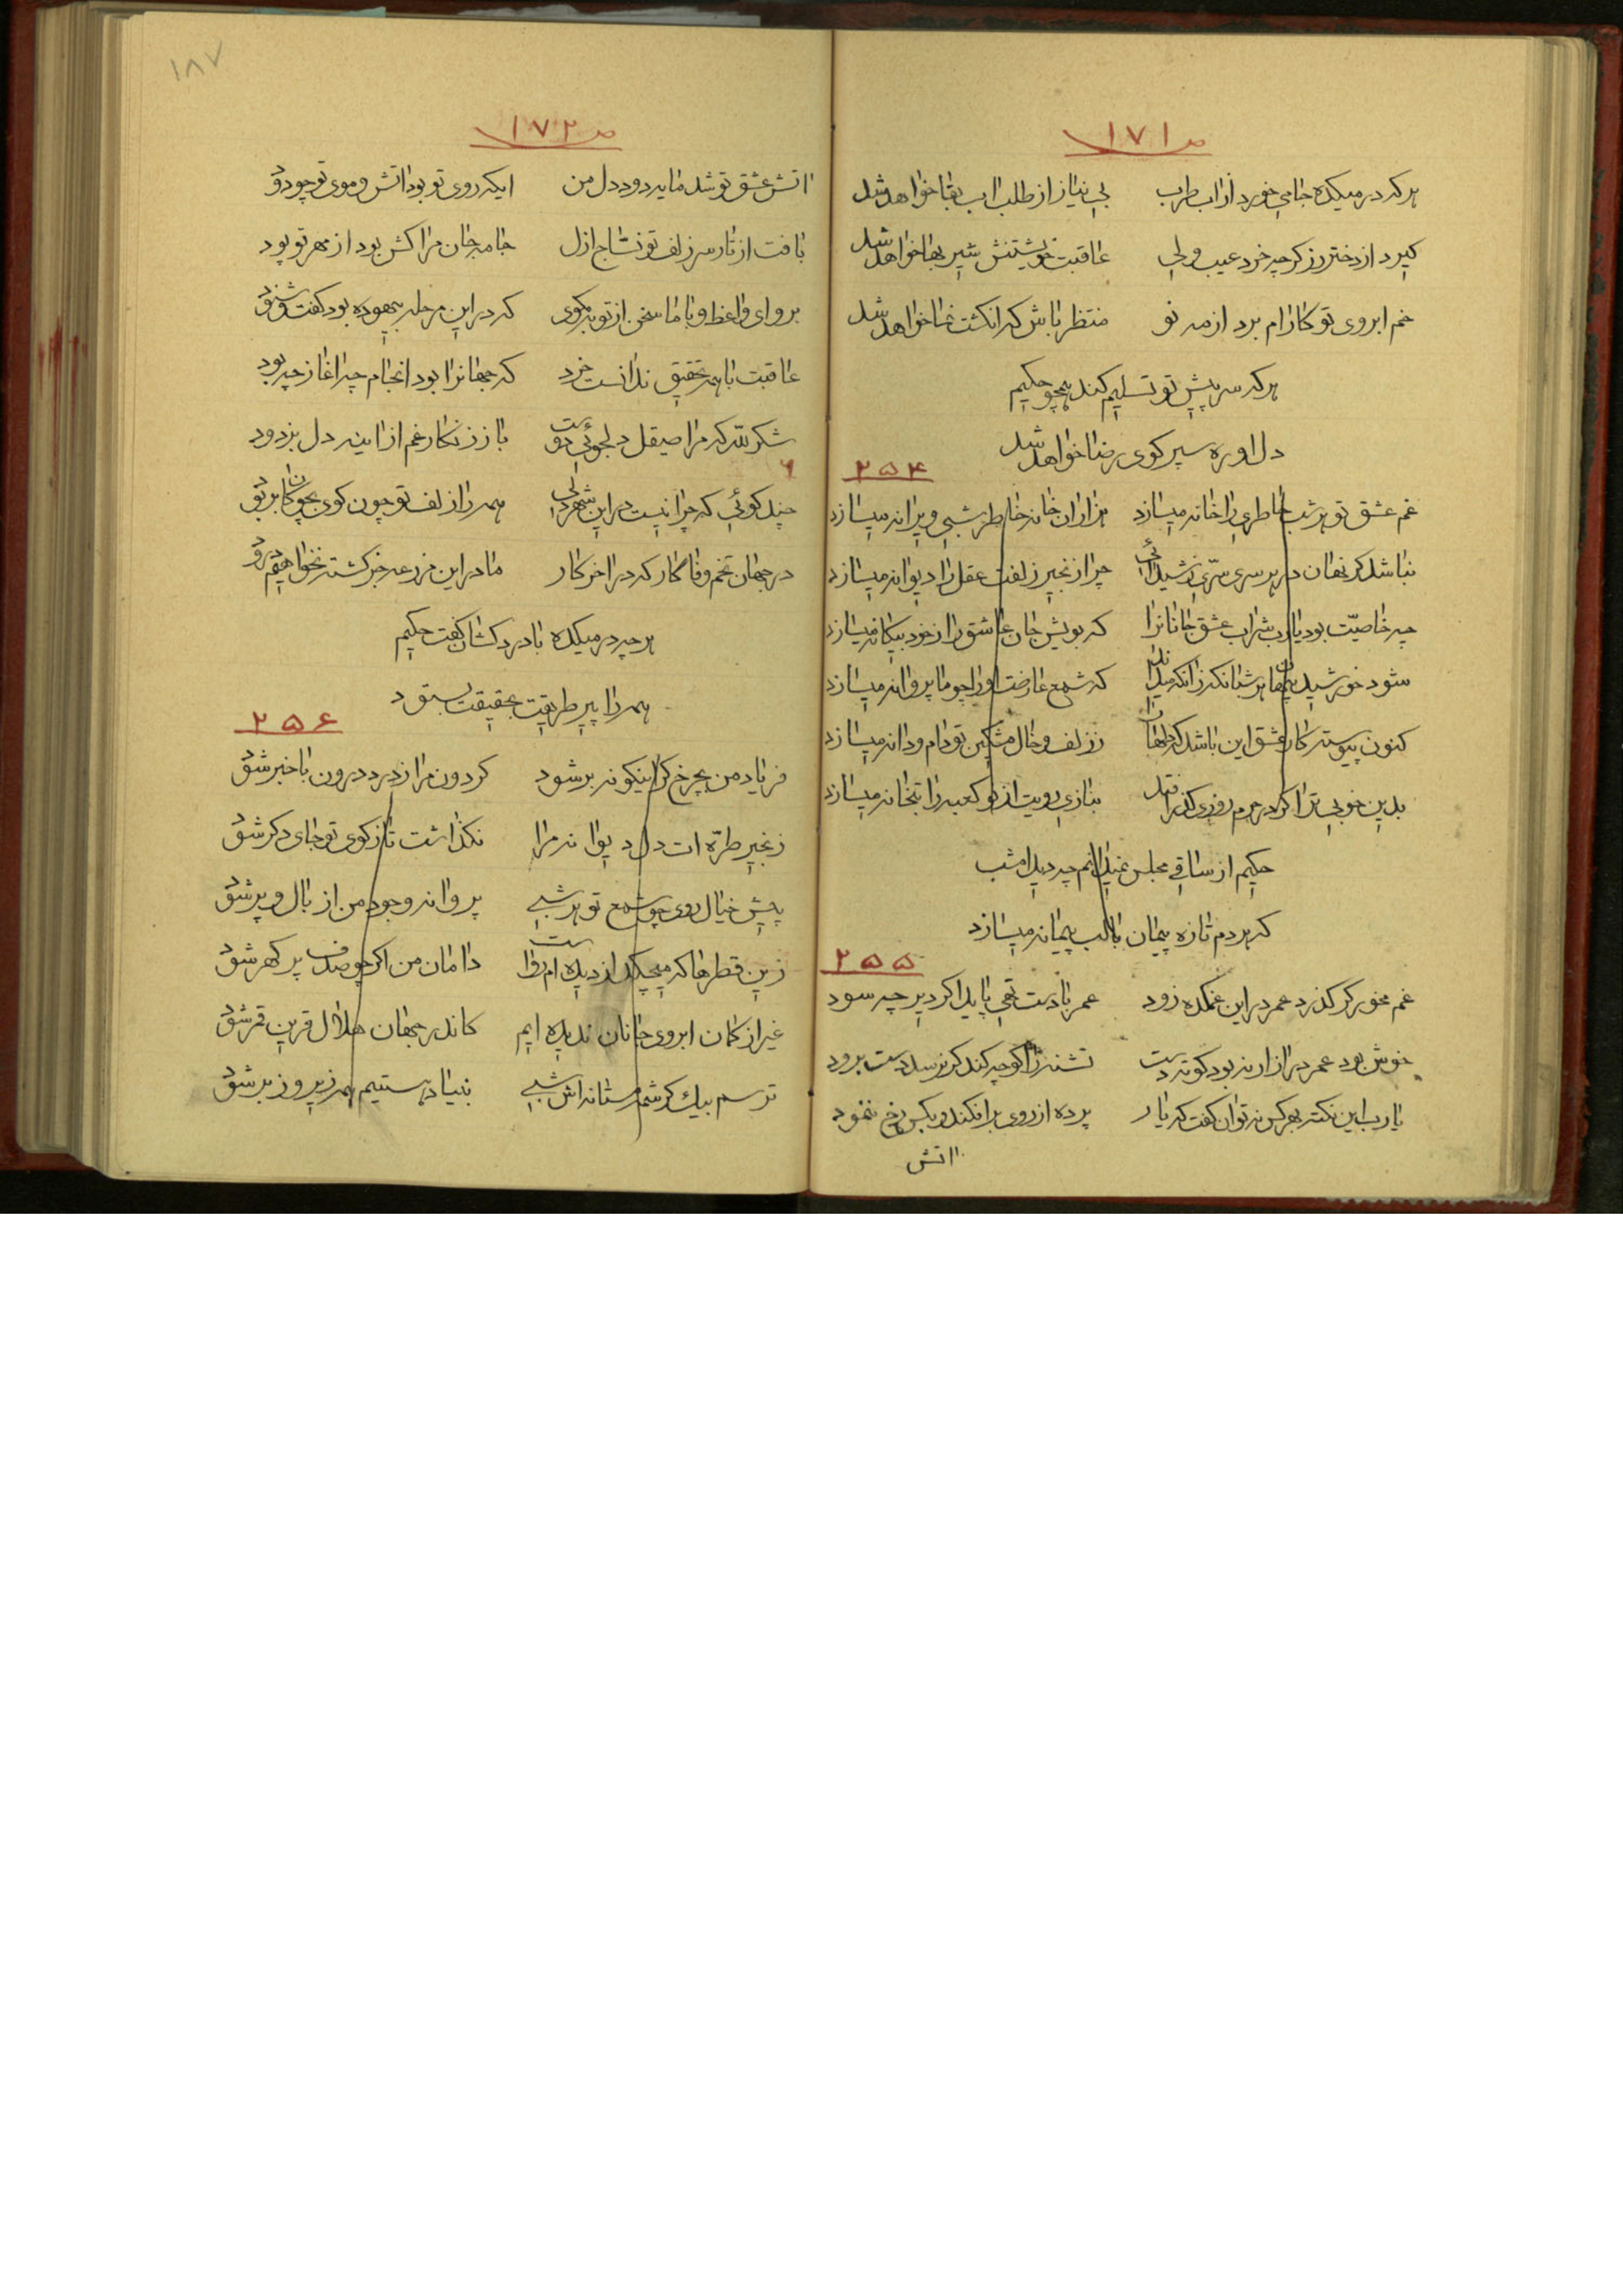 ص ۱۷۱
هر که در میکده جامی خورد از اب طرب بی نیاز از طلب اب بقا خواهد شد
گیرد از دختر رز گرچه خرد عیب ولی عاقبت خویشتنش شیربها خواهد شد
خم ابروی تو کارام برد از مه نو منتظر باش که انگشت نما خواهد شد
هر که سر پیش تو تسلیم کند همچو حکیم
دل اوره سپر کوی رضا خواهد شد
۲۵۴
غم عشق تو هر شب خاطری را خانه میسازد هزاران خانه خاطر شبی ویرانه میسازد
نباشد گر نهان در هر سری سرّی ز شیدائی چرا زنجیر زلفت عقل را دیوانه میسازد
چه خاصیّت بود یارب شراب عشق جانانرا که بویش جان عاشق را ز خود بیگانه میسازد
شود خورشید پنهان هر شبانگه زانکه میداند که شمع عارضت او را چو ما پروانه میسازد
کنون پیوسته کار عشق این باشد که دلها را ز زلف و خال مشکین تو دام و دانه میسازد
بدین خوبی ترا گر در حرم روزی گذر افتد بنازی رویت از نو کعبه را بتخانه میسازد
حکیم از ساقی مجلس نمیدانم چه دید امشب
که هر دم تازه پیمان با لب پیمانه میسازد
۲۵۵
غم مخور گر گذرد عمر در این غمکده زود عمر بادست تهی پاید اگر دیر چه سود
خوش بود عمر دراز ار نبود کوته دست تشنه را گو چه کند گر نرسد دست برود
یارب این نکته بهر کس نتوان گفت که یار پرده از روی برافکند و بکس رخ ننمود
اتش
۱۸۷
ص ۱۷۲
اتش عشق تو شد مایه دود دل من ایکه روی تو بود اتش و موی تو چو دود
بافت از تار سر زلف تو نساج ازل جامه جان مرا کش بود از مهر تو پود
برو ای واعظ و با ما سخن از توبه مگوی که در این مرحله بیهوده بود گفت و شنود
عاقبت با همه تحقیق ندانست خرد که جهانرا بود انجام چه اغاز چه بود
شکر لله که مرا صیقل دلجوئی دوست باز زنگار غم از اینه دل بزدود
چند گوئی که چرا نیست در این شهر دلی همه را زلف تو چون گوی بچوگان بربود
در جهان تخم وفا کار که در اخر کار ما در این مزرعه جز کشته نخواهیم درود
هر چه در میکده با دردکشان گفت حکیم
همه را پیر طریقت بحقیقت بستود
۲۵۶
فریاد من بچرخ گر اینگونه بر شود گردون مرا ز درد درون با خبر شود
زنجیر طرّه ات دل دیوانه مرا نگذاشت تا ز کوی تو جای دگر شود
پیش خیال روی چو شمع تو هر شبی پروانه وجود من از بال و پر شود
زین قطرها که میچکد از دیده ام رواست دامان من اگر چو صدف پر گهر شود
غیر از کمان ابروی جانان ندیده ایم کاندر جهان هلال قرین قمر شود
ترسم بیک کرشمه مستانه اش شبی بنیاد هستیم همه زیر و زبر شود